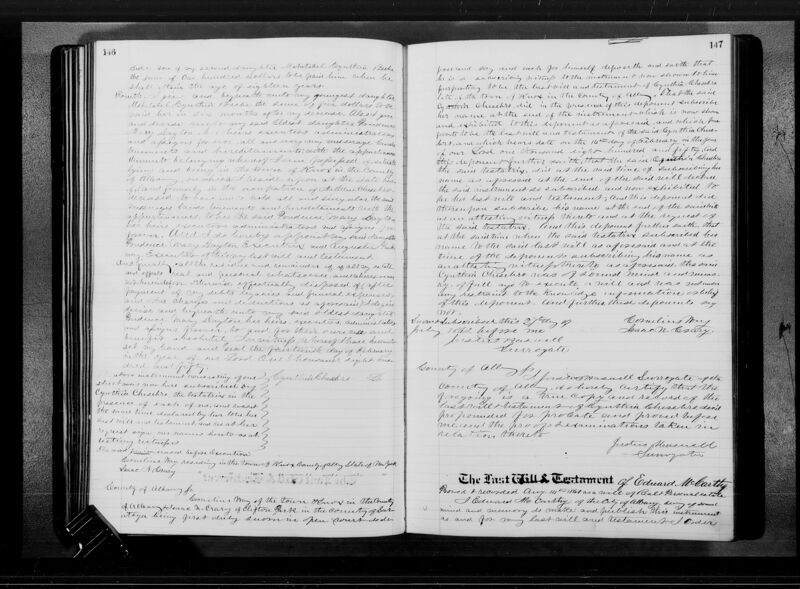 146
sider son of my second daughter Mehitabel Cynthia Peake
the sum of One hundred Dollars to be paid him when he
shall attain the age of eighteen years.
Fourth I give and bequeath unto my youngest daughter
Mehitabel Cynthia Peake the sum of five dollars to be
paid her in six months after my decease. Also I give
and devise unto my said oldest daughter Prudence
Mary Dayton her heirs executors administrators
and assigns for ever all and every my messuage lands
tenements and hereditaments with the appurtenances
thereunto belonging whereof I am possessed of situate
lying and being in the Town of Knox in the County
of Albany on whereof I reside upon at the date hereof
and formerly in the occupation of Cheshire
deceased to have and to hold all and singular the said
messuages lands tenements and hereditaments with the
appurtenances to her the said Prudence Mary Dayton
her heirs executors administrators and assigns for
ever. And I do hereby appoint my said daughter
Prudence Mary Dayton Executrix and
my Executor of this my last will and testament.
And finally all the rest residue and remainder of my estate
and effects real and personal whatsoever and
not herein otherwise effectually disposed of after
payment of my debts legacies and funeral expenses
and other charges and deductions as aforesaid I do give
devise and bequeath unto my said oldest daughter
Prudence Mary Dayton her heirs executors administrators
and assigns forever to and for their own use and
benefit absolutely. In witness whereof I have hereunto
set my hand and seal the fourteenth day of February
in the year of our Lord One thousand eight hun-
dred and fifty.
The above instrument consisting of one
sheet was now here subscribed by Cynthia Cheshire L.S.
Cynthia Cheshire the testatrix in the
presence of each of us and was at
the same time declared by her to be her
last will and testament and we at her
request sign our names hereto as at-
testing witnesses
erased before execution
Cornelius Way residing in the town of Knox County of Albany State of New York
Isaac N. Crary
County of Albany ss
Cornelius Way of the town of Knox in the County
of Albany & Isaac N. Crary of Clifton Park in the County of Sar-
atoga being first duly sworn in open court do de-
147
pose and say and each for himself deposeth and saith that
he is a subscribing witness to the instrument now shown to him
purporting to be the last will and testament of Cynthia Cheshire
late of the town of Knox in the County of Albany. That the said
Cynthia Cheshire did in the presence of this deponent subscribe
her name at the end of the instrument which is now shown
and exhibited to this deponent as aforesaid and which pur-
ports to be the last will and testament of the said Cynthia Ches-
hire and which bears date on the 14th day of February in the year
of our Lord one thousand eight hundred and fifty. And
this deponent further saith, that the said Cynthia Cheshire
the said testatrix, did at the said time of subscribing her
name as aforesaid at the end of the said will declare
the said instrument so subscribed and now exhibited to
be her last will and testament; And this deponent did
thereupon subscribe his name at the end of the said will
as an attesting witness thereto and at the request of
the said testatrix. And this deponent further saith, that
at the said time when the said testatrix subscribed her
name to the said last will as aforesaid and at the
time of the deponent subscribing his name as
an attesting witness thereto as aforesaid the said
Cynthia Cheshire was of sound mind and memo-
ry of full age to execute a will and was not under
any restraint to the knowledge information or belief
of this deponent. And further these deponents say
not.
Sworn & Subscribed this 27th day of Cornelius Way
July before me Isaac N. Crary
Justus Haswell
Surrogate
County of Albany ss
I Justus Haswell Surrogate of the
County of Albany do hereby certify that the
foregoing is a true copy and record of the
last will & testament of Cynthia Cheshire dec'd
propounded for probate and proved before
me and the proofs & examinations taken in
relation thereto
Justus Haswell
Surrogate
The Last Will & Testament of Edward McCarthy
Proved & recorded Aug. as a will of Real & Personal estate
I Edward McCarthy of the City of Albany being of sound
mind and memory do make and publish this instrument
as and for my last will and testament. I order